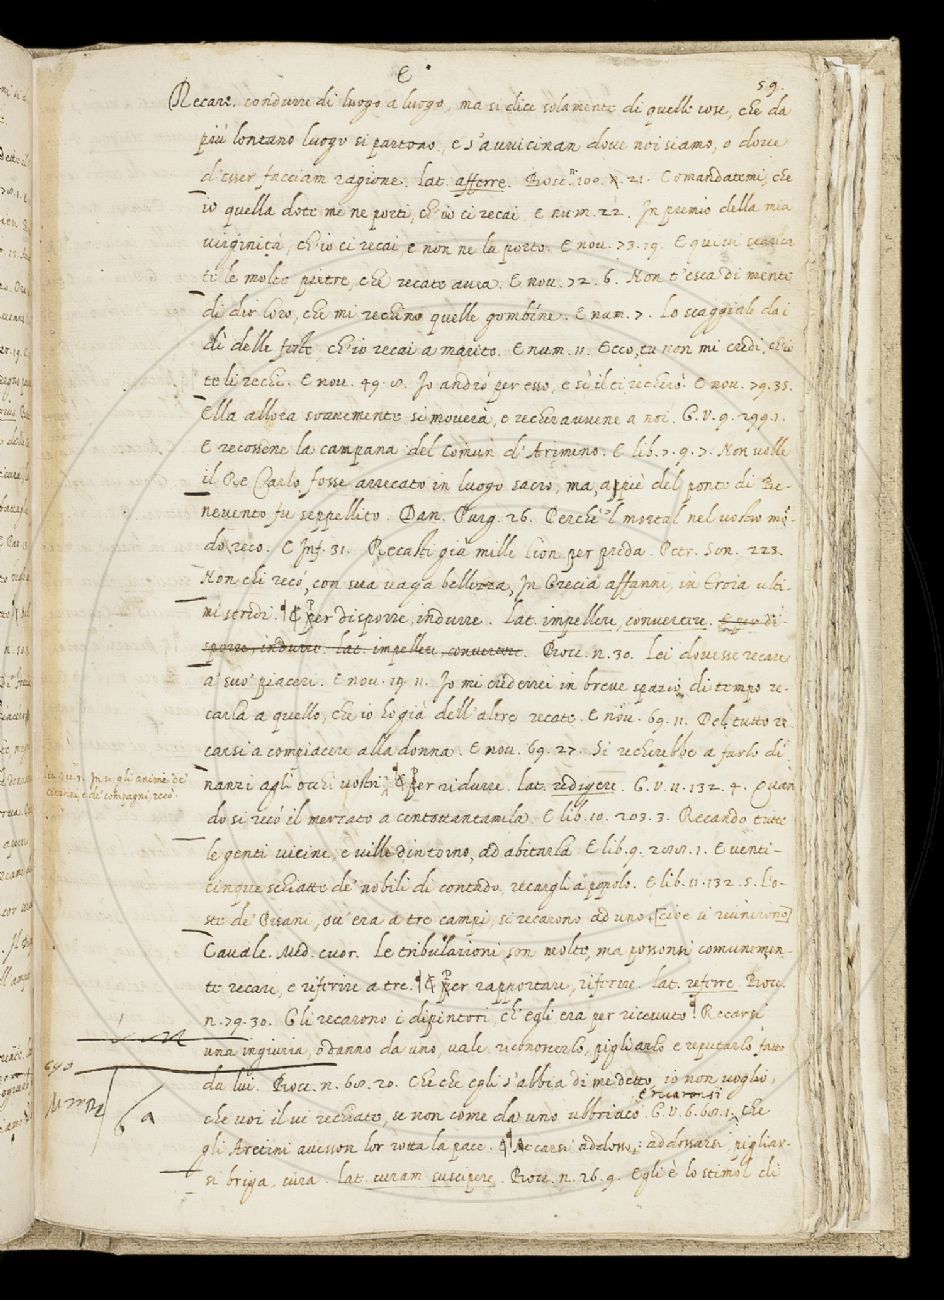 E
59.
Recare. condurre di luogo a luogo, ma si dice solamente di quelle cose, che da
più lontano luogo si partono, e s'avvicinan dove noi siamo, o dove
d'esser facciam ragione. Lat. afferre. Bocc. n. 100. 21. Comandatemi, che
io quella dote me ne porti, ch'io ci recai. E num. 22. In premio della mia
virginità, ch'io ci recai, e non ne la porto. E nov. 73. 19. E quivi scarica
te le molte pietre, che recate avea. E nov. 72. 6. Non t'esca di mente
di dir loro, che mi rechino quelle gombine. E num. 7. Lo scaggiale dai
dì delle feste ch'io recai a marito. E num. 11. Ecco, tu non mi credi, ch'io
te li rechi. E nov. 49. Io andrò per esso, e sì il ti recherò. E nov. 79. 35.
Ella allora soavemente si moverà, e recheravvene a noi. G. V. 9.
E recossene la campana del Comun d'Arimino. E lib. 7. 9. 7. Non volle
il Re Carlo fosse arrecato in luogo sacro, ma, appiè del ponte di Be-
nevento fu seppellito. Dan. Purg. 26. Perchè 'l mortal nel vostro mō-
do reco. E Inf. 31. Recasti già mille lion per preda. Petr. Son. 223.
Non chi recò, con sua vaga bellezza, In Grecia affanni, in Troia ulti-
mi stridi. ¶ & Per disporre, indurre. Lat. impellere, convertere. E per di-
sporre, indurre. Lat. impellere, convertere. Bocc. n. 30. Lei dovesse recare
a' suoi piaceri. E nov. 19. 11. Io mi crederrei in breve spazio di tempo re-
carla a quello, che io ho già dell'altre recate. E nov. 69. 11. Del tutto re
carsi a compiacere alla donna. E nov. 69. 27. Si recherebbe a farlo di
nanzi agli occhi vostri. ¶ & Per ridurre. Lat. redigere. G. V. 11. 132. 4. Quan
In se gli animi de'
cittadini, e de' compagni recò
do si recò il mercato a centottantamila. E lib. 10. 203. 3. Recando tutte
le genti vicine, e ville dintorno, ad abitarla. E lib. 9. 1. E venti-
cinque schiatte de' nobili di contado, recargli a popolo. E lib. 11. 132. 5. L'o-
ste de' Pisani, ov' era a tre campi, si recarono ad uno, [cioè si reunirono]
Cavalc. Med. cuor. Le tribulazioni son molte, ma possonsi comunemen-
te recare, e riferire a tre. ¶ & Per rapportare, riferire. Lat. referre. Bocc.
n. 79. 30. Gli recarono i dipintori, ch'egli era per ricevuto. ¶ Recarsi
una ingiuria, o danno da uno, vale riconoscerlo, pigliarlo e reputarlo fatto
da lui. Bocc. n. 68. 20. Che che egli s'abbia di me detto, io non voglio,
che voi il vi rechiate, se non come da uno ubbriaco. G. V. 6. 68. 1. E recaronsi che
gli Aretini avesson lor rotta la pace. ¶ Recarsi addosso: addossarsi, pigliar-
si briga, cura. Lat. curam suscipere. Bocc. n. 26. 9. Egli è lo stimol di